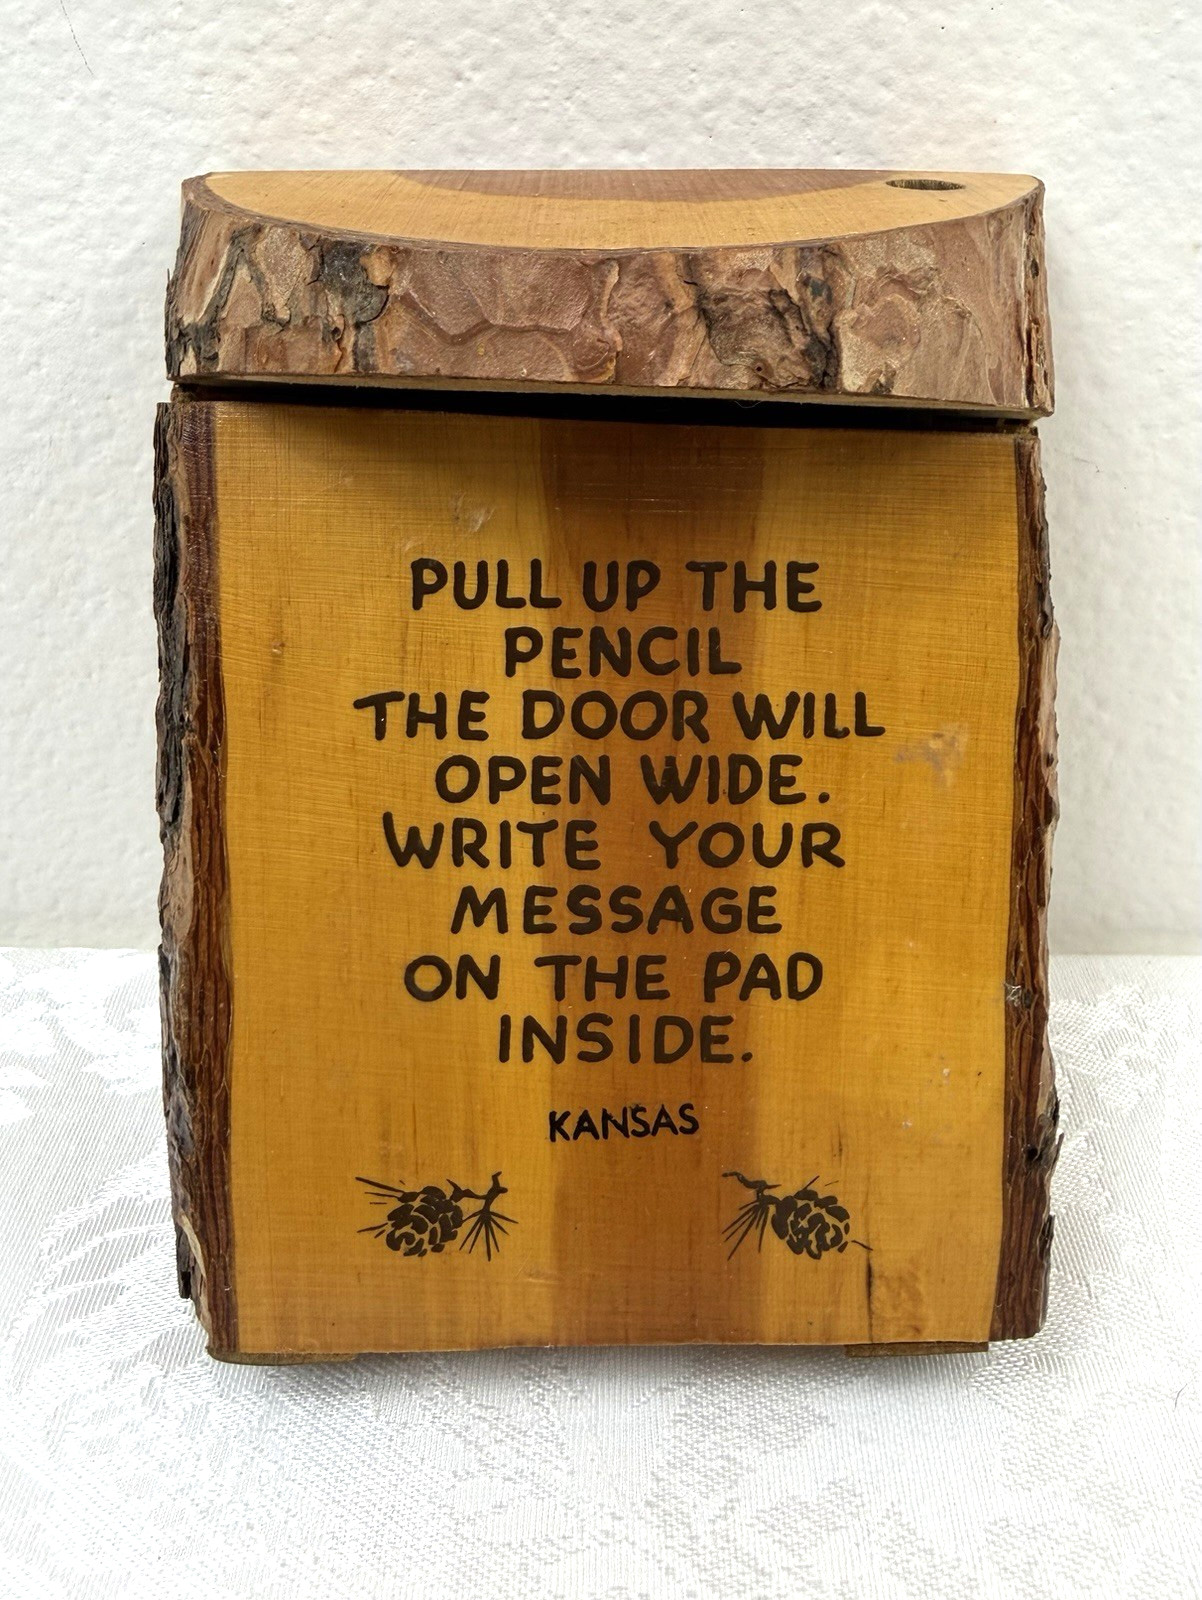 PULL UP THE
PENCIL
THE DOOR WILL
OPEN WIDE.
WRITE YOUR
MESSAGE
ON THE PAD
INSIDE.
KANSAS